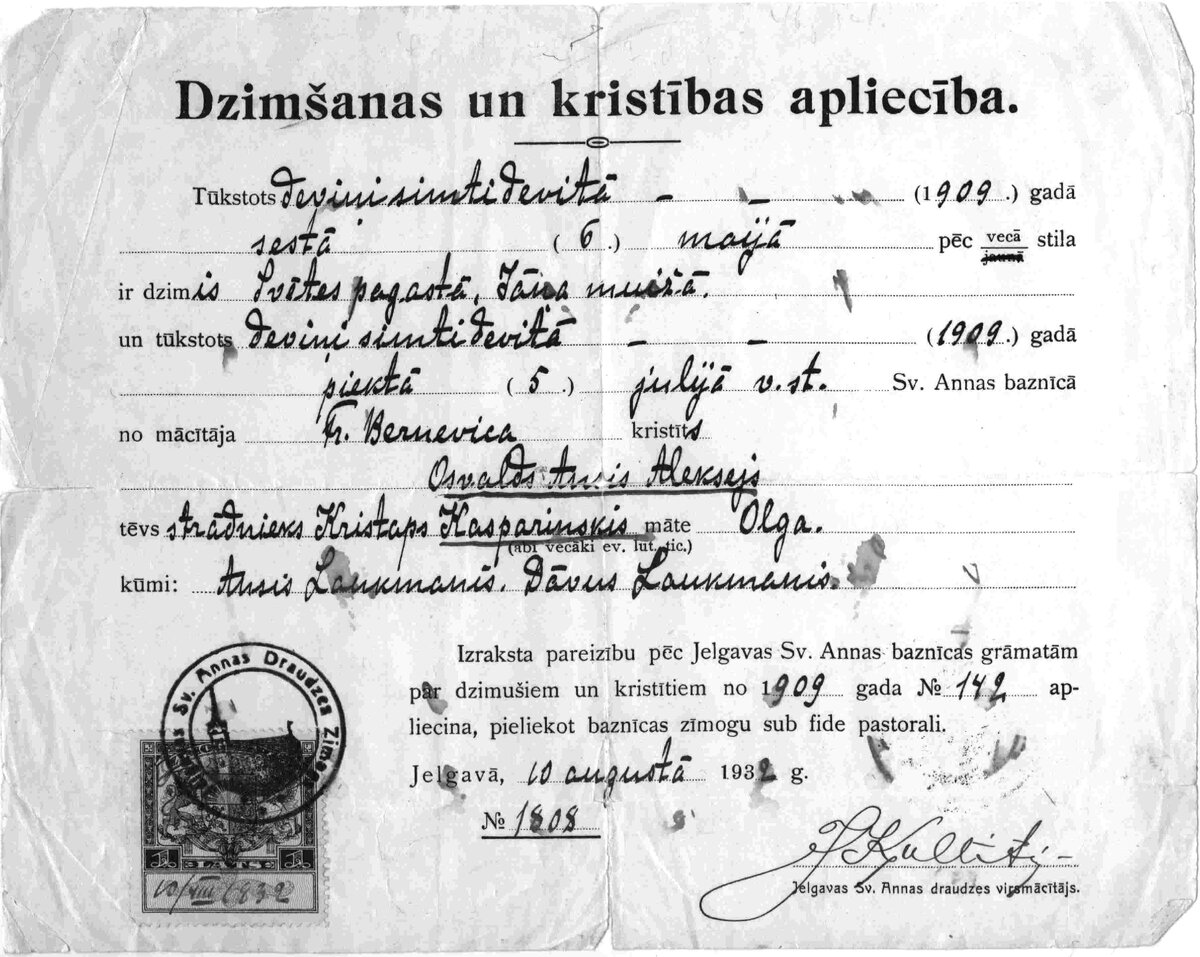 Dzimšanas un kristības apliecība.
Tūkstots deviņi simti devitā — — (1909.) gadā
sestā (6.) maijā pēc vecā jaunā stila
ir dzimis Svētes pagastā, Jāņa muižā.
un tūkstots deviņi simti devitā — — (1909.) gadā
piektā (5.) julijā v. st. Sv. Annas baznīcā
no mācītāja Fr. Bernevica kristīts
Osvalds Ansis Aleksejs
tēvs strādnieks Kristaps Kasparinskis māte Olga.
(abi vecāki ev. lut. tic.)
kūmi: Ansis Laukmanis. Dāvus Laukmanis.
Izraksta pareizību pēc Jelgavas Sv. Annas baznīcas grāmatām
par dzimušiem un kristītiem no 1909 gada № 142 ap-
liecina, pieliekot baznīcas zīmogu sub fide pastorali.
Jelgavā, 10 augustā 1932 g.
№ 1808
Sv. Annas Draudzes
1 LATS 1
10/VIII 1932
Jelgavas Sv. Annas draudzes virsmācītājs.